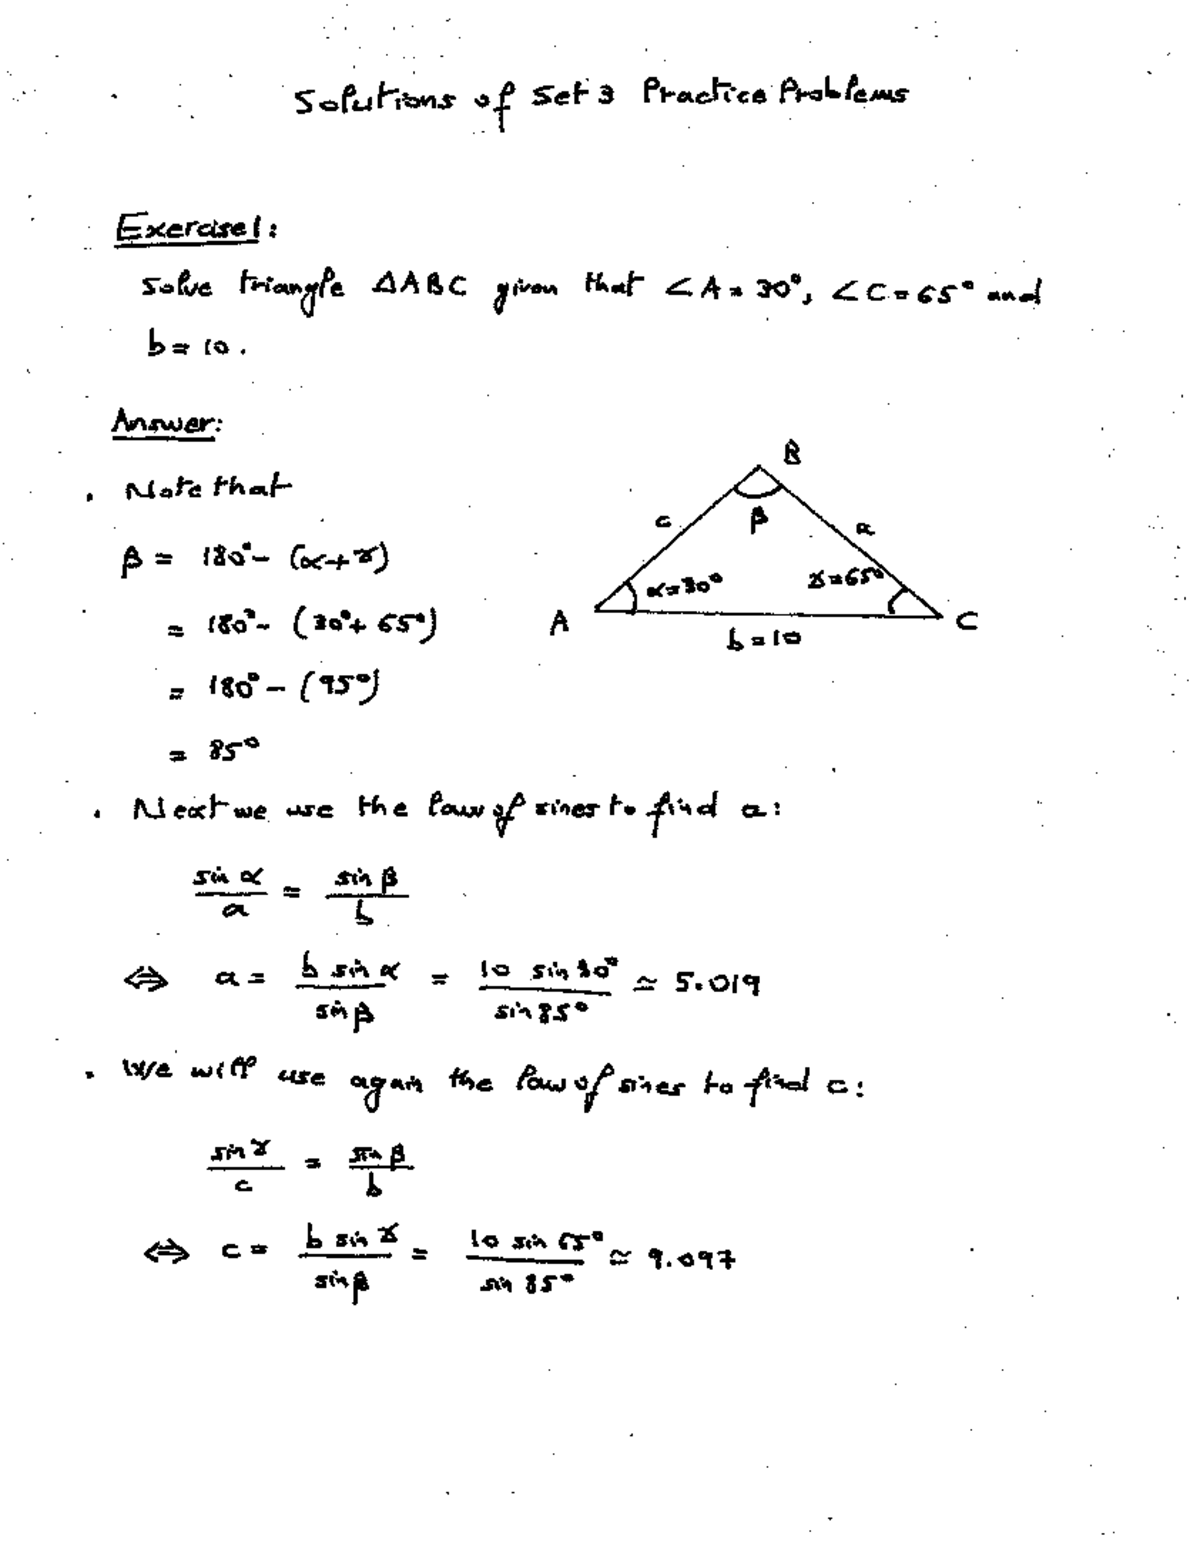 Solutions of Set 3 Practice Problems
Exercise 1:
Solve triangle ΔABC given that ∠A = 30°, ∠C = 65° and
b = 10.
Answer:
. Note that
β = 180° - (α + γ)
= 180° - (30° + 65°)
= 180° - (95°)
= 85°
B
c β a
α = 30° γ = 65°
A C
b = 10
. Next we use the law of sines to find a:
sin α / a = sin β / b
⇔ a = b sin α / sin β = 10 sin 30° / sin 85° ≃ 5.019
. We will use again the law of sines to find c:
sin γ / c = sin β / b
⇔ c = b sin γ / sin β = 10 sin 65° / sin 85° ≃ 9.097